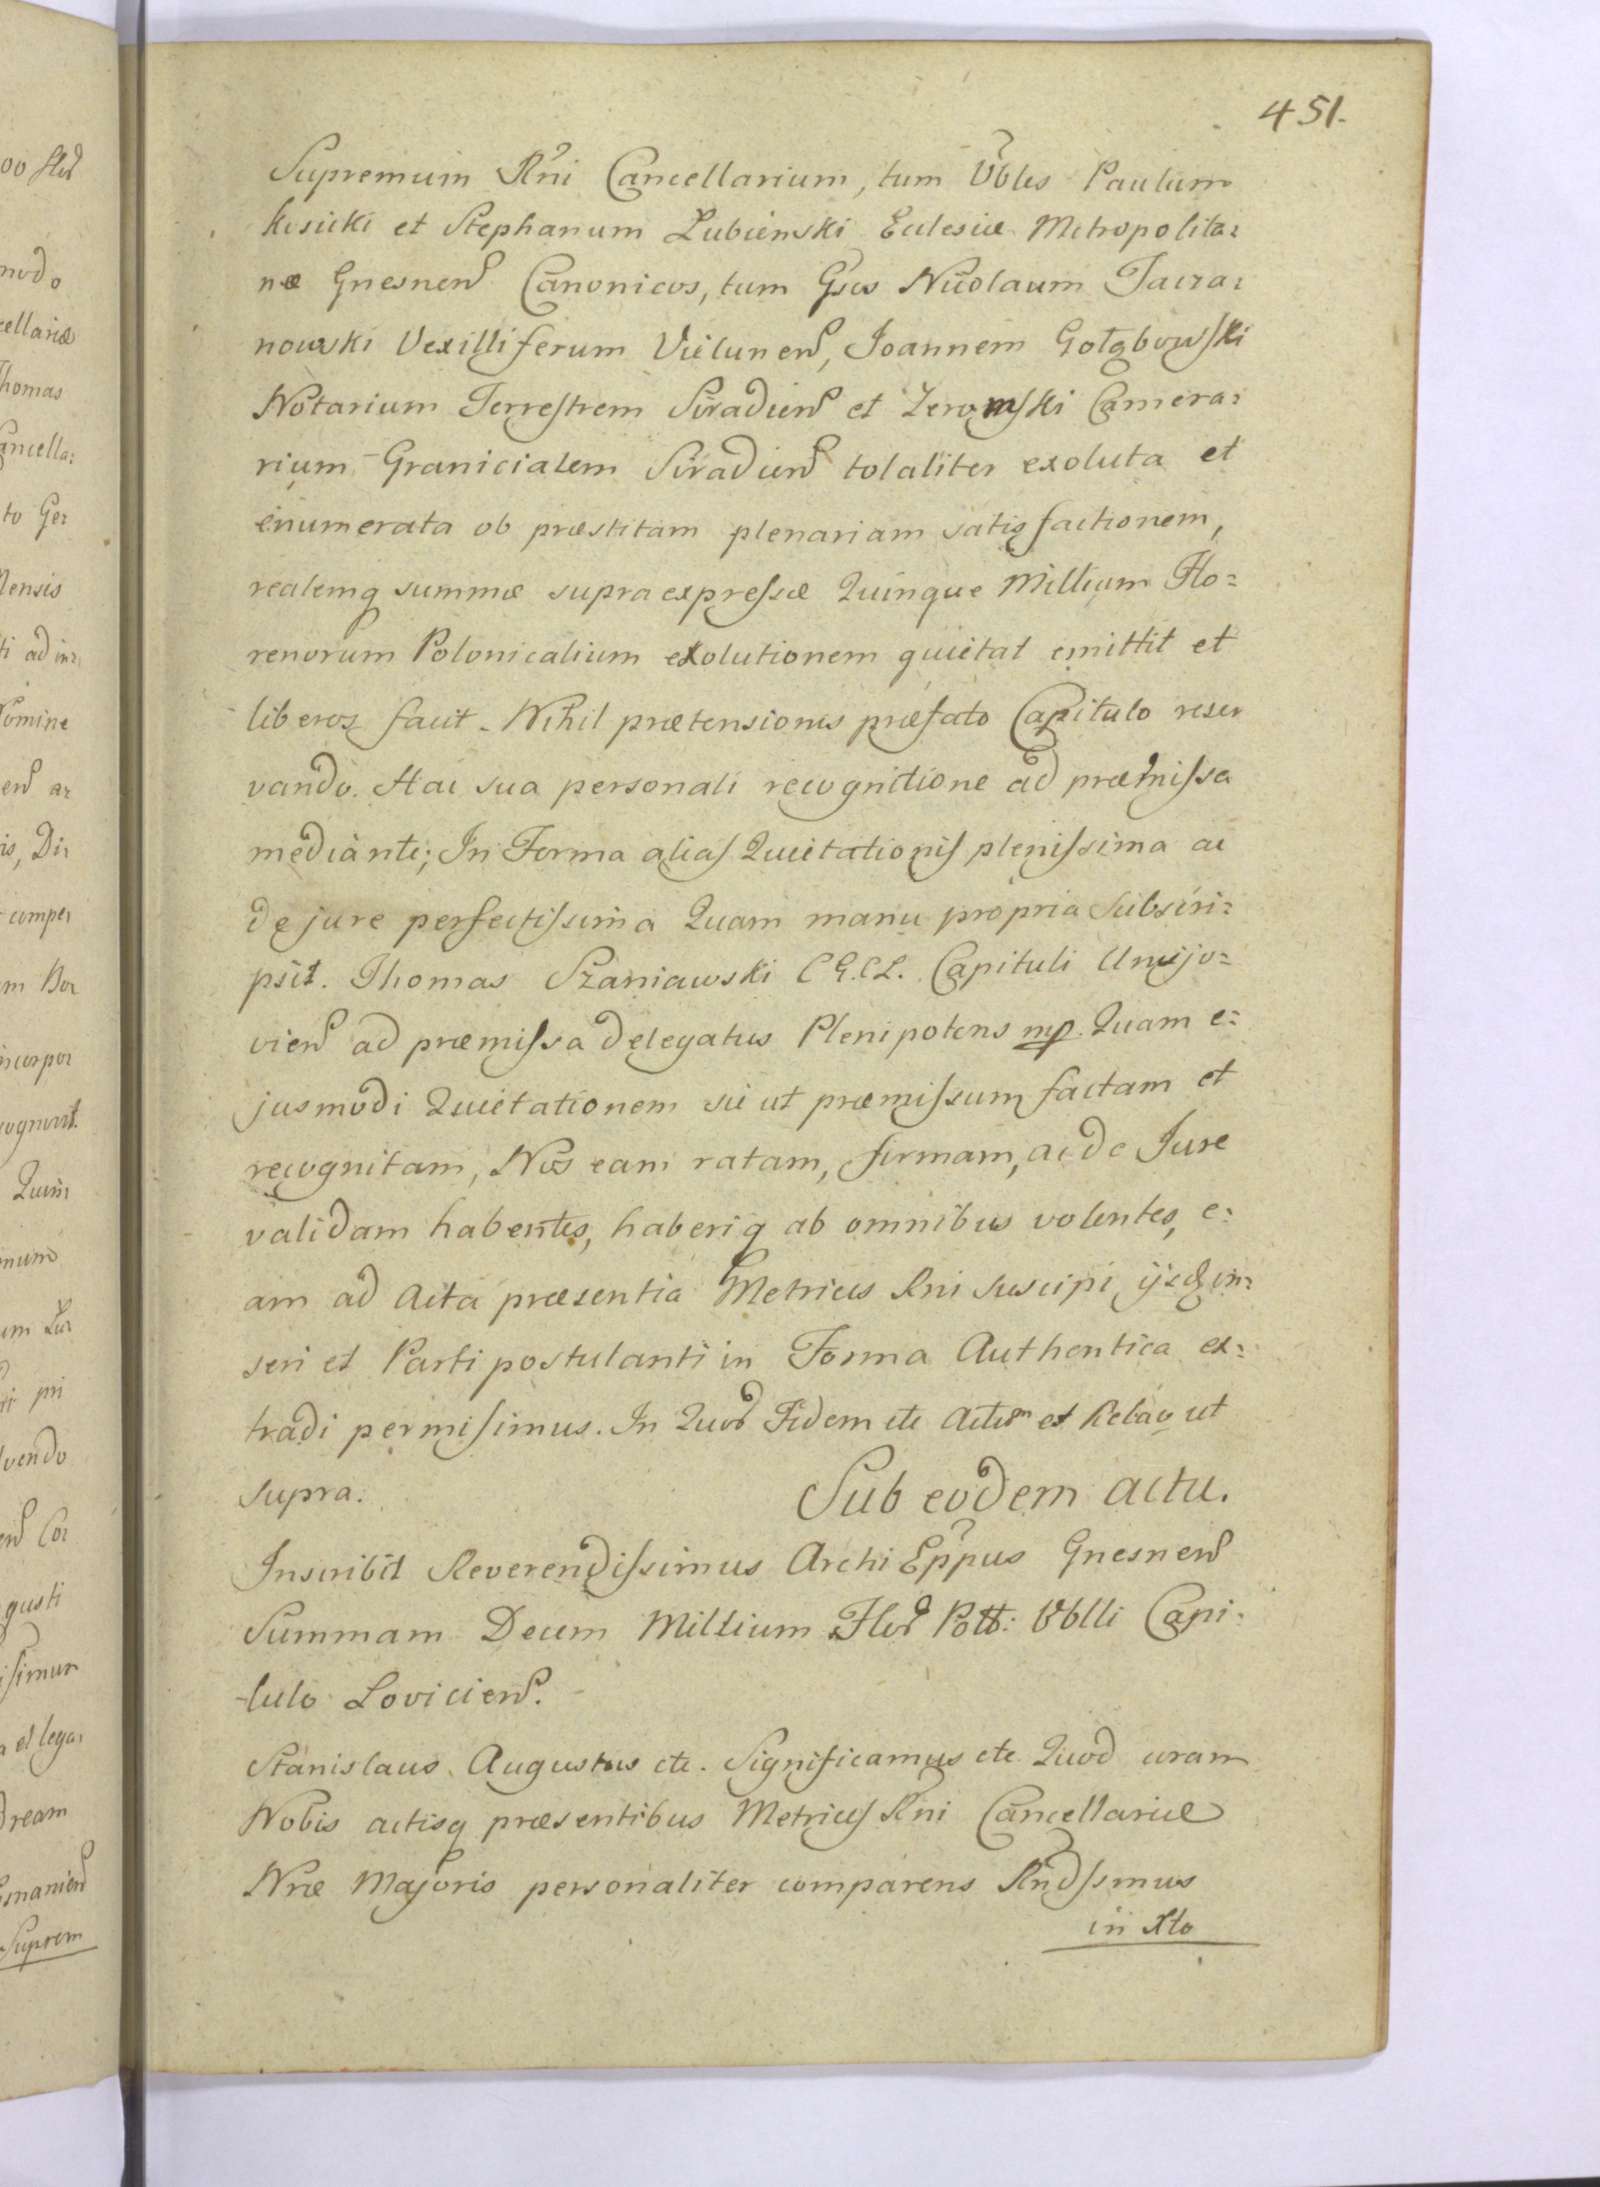 451.
Supremum Rni Cancellarium, tum Vbles Paulum
Kosicki et Stephanum Łubienski Eclesiæ Metropolita=
næ Gnesnens Canonicos, tum Gsos Nicolaum Tacza=
nowski Vexilliferum Vielunens, Joannem Gołębowski
Notarium Terrestrem Siradiens et Zeromski Camera=
rium Granicialem Siradiens totaliter exoluta et
enumerata ob præstitam plenariam satisfactionem,
realemq summæ supraexpressæ Quinque Millium Flo=
renorum Polonicalium exolutionem quietat emittit et
liberos facit. Nihil prætensionis præfato Capitulo reser
vando. Hac sua personali recognitione ad præmissa
mediante; In Forma alias Quietationis plenissima ac
de jure perfectissima Quam manu propria Subscri=
psit. Thomas Szaniawski C G. C L. Capituli Uniejo=
viens ad præmissa delegatus Plenipotens mp. Quam e=
jusmodi Quietationem sic ut præmissum factam et
recognitam, Nos eam ratam, firmam, ac de Jure
validam habentes, haberiq ab omnibus volentes, e=
am ad Acta præsentia Metrices Rni suscipi, ijsq in=
seri et Parti postulanti in Forma Authentica ex=
tradi permisimus. In Quor Fidem etc Actum et Relao ut
supra.
Sub eodem actu.
Inscribit Reverendissimus Archi Eppus Gnesnens
Summam Decem Millium Flor Poll: Vblli Capi=
tulo Loviciens.
Stanislaus Augustus etc. Significamus etc Quod coram
Nobis actisq præsentibus Metrices Rni Cancellariæ
Nræ Majoris personaliter comparens Rndssmus
in Xto